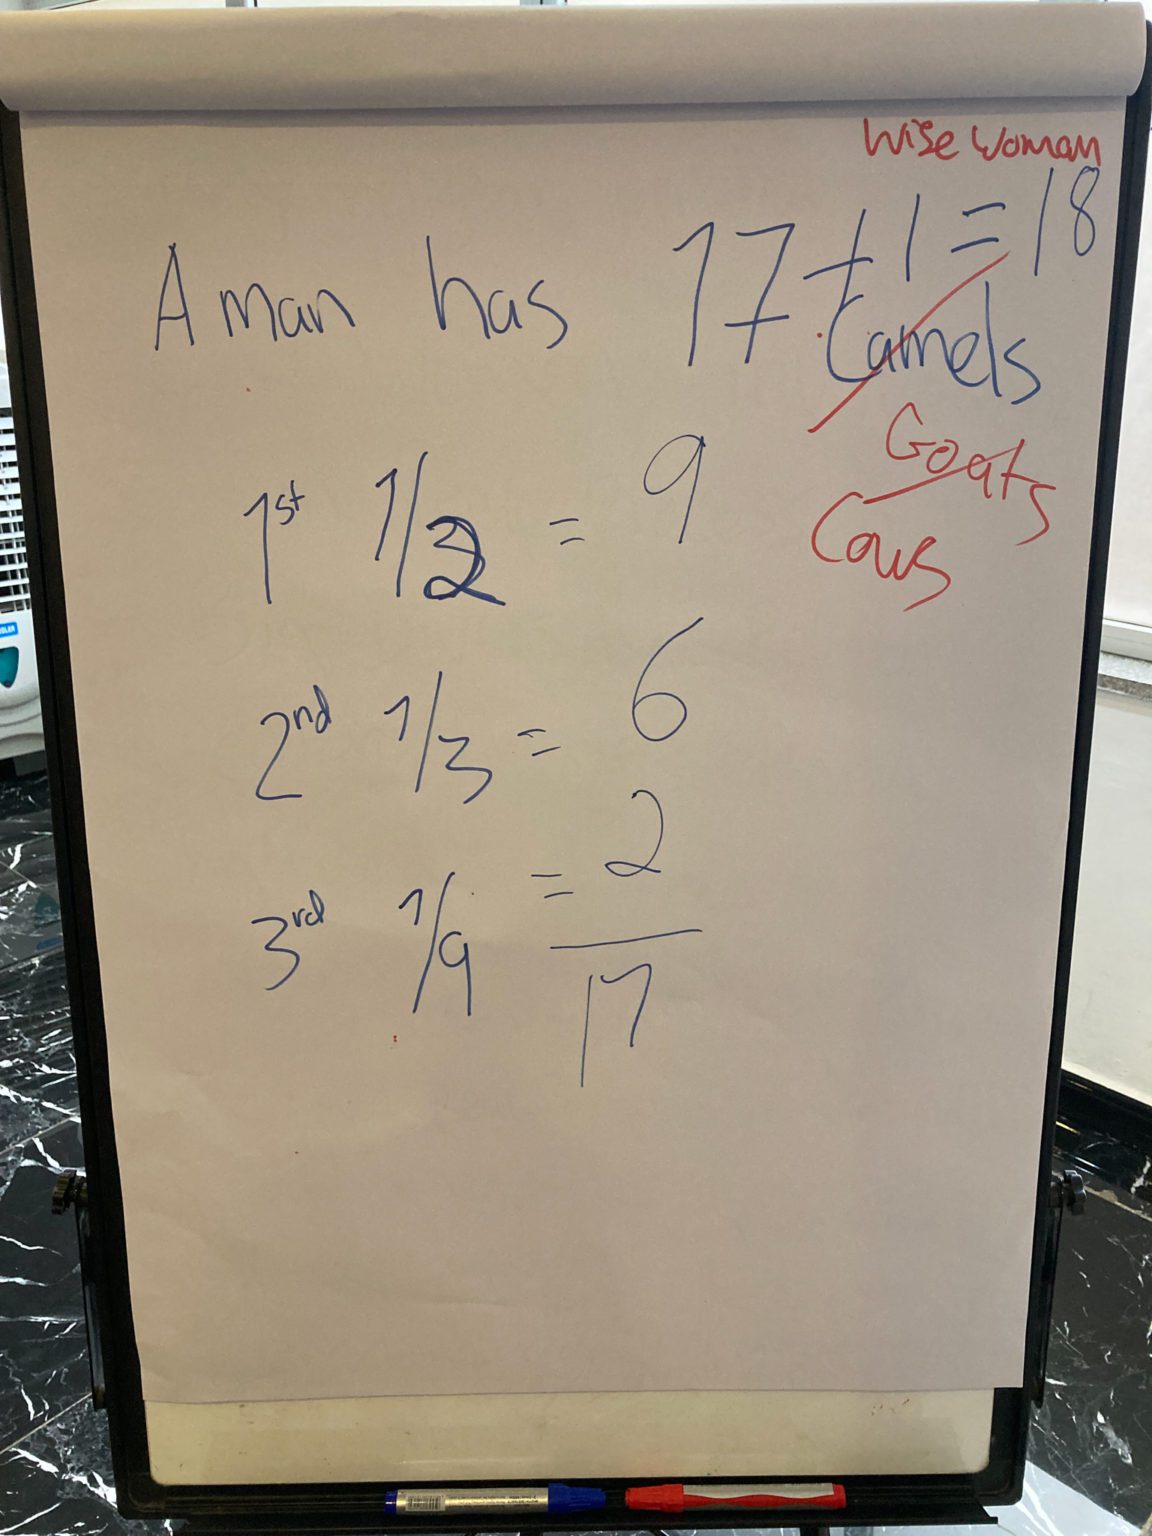 Wise Woman
A man has 17 + 1 = 18
Camels
Goats
Cows
1st 1/2 = 9
2nd 1/3 = 6
3rd 1/9 = 2
17